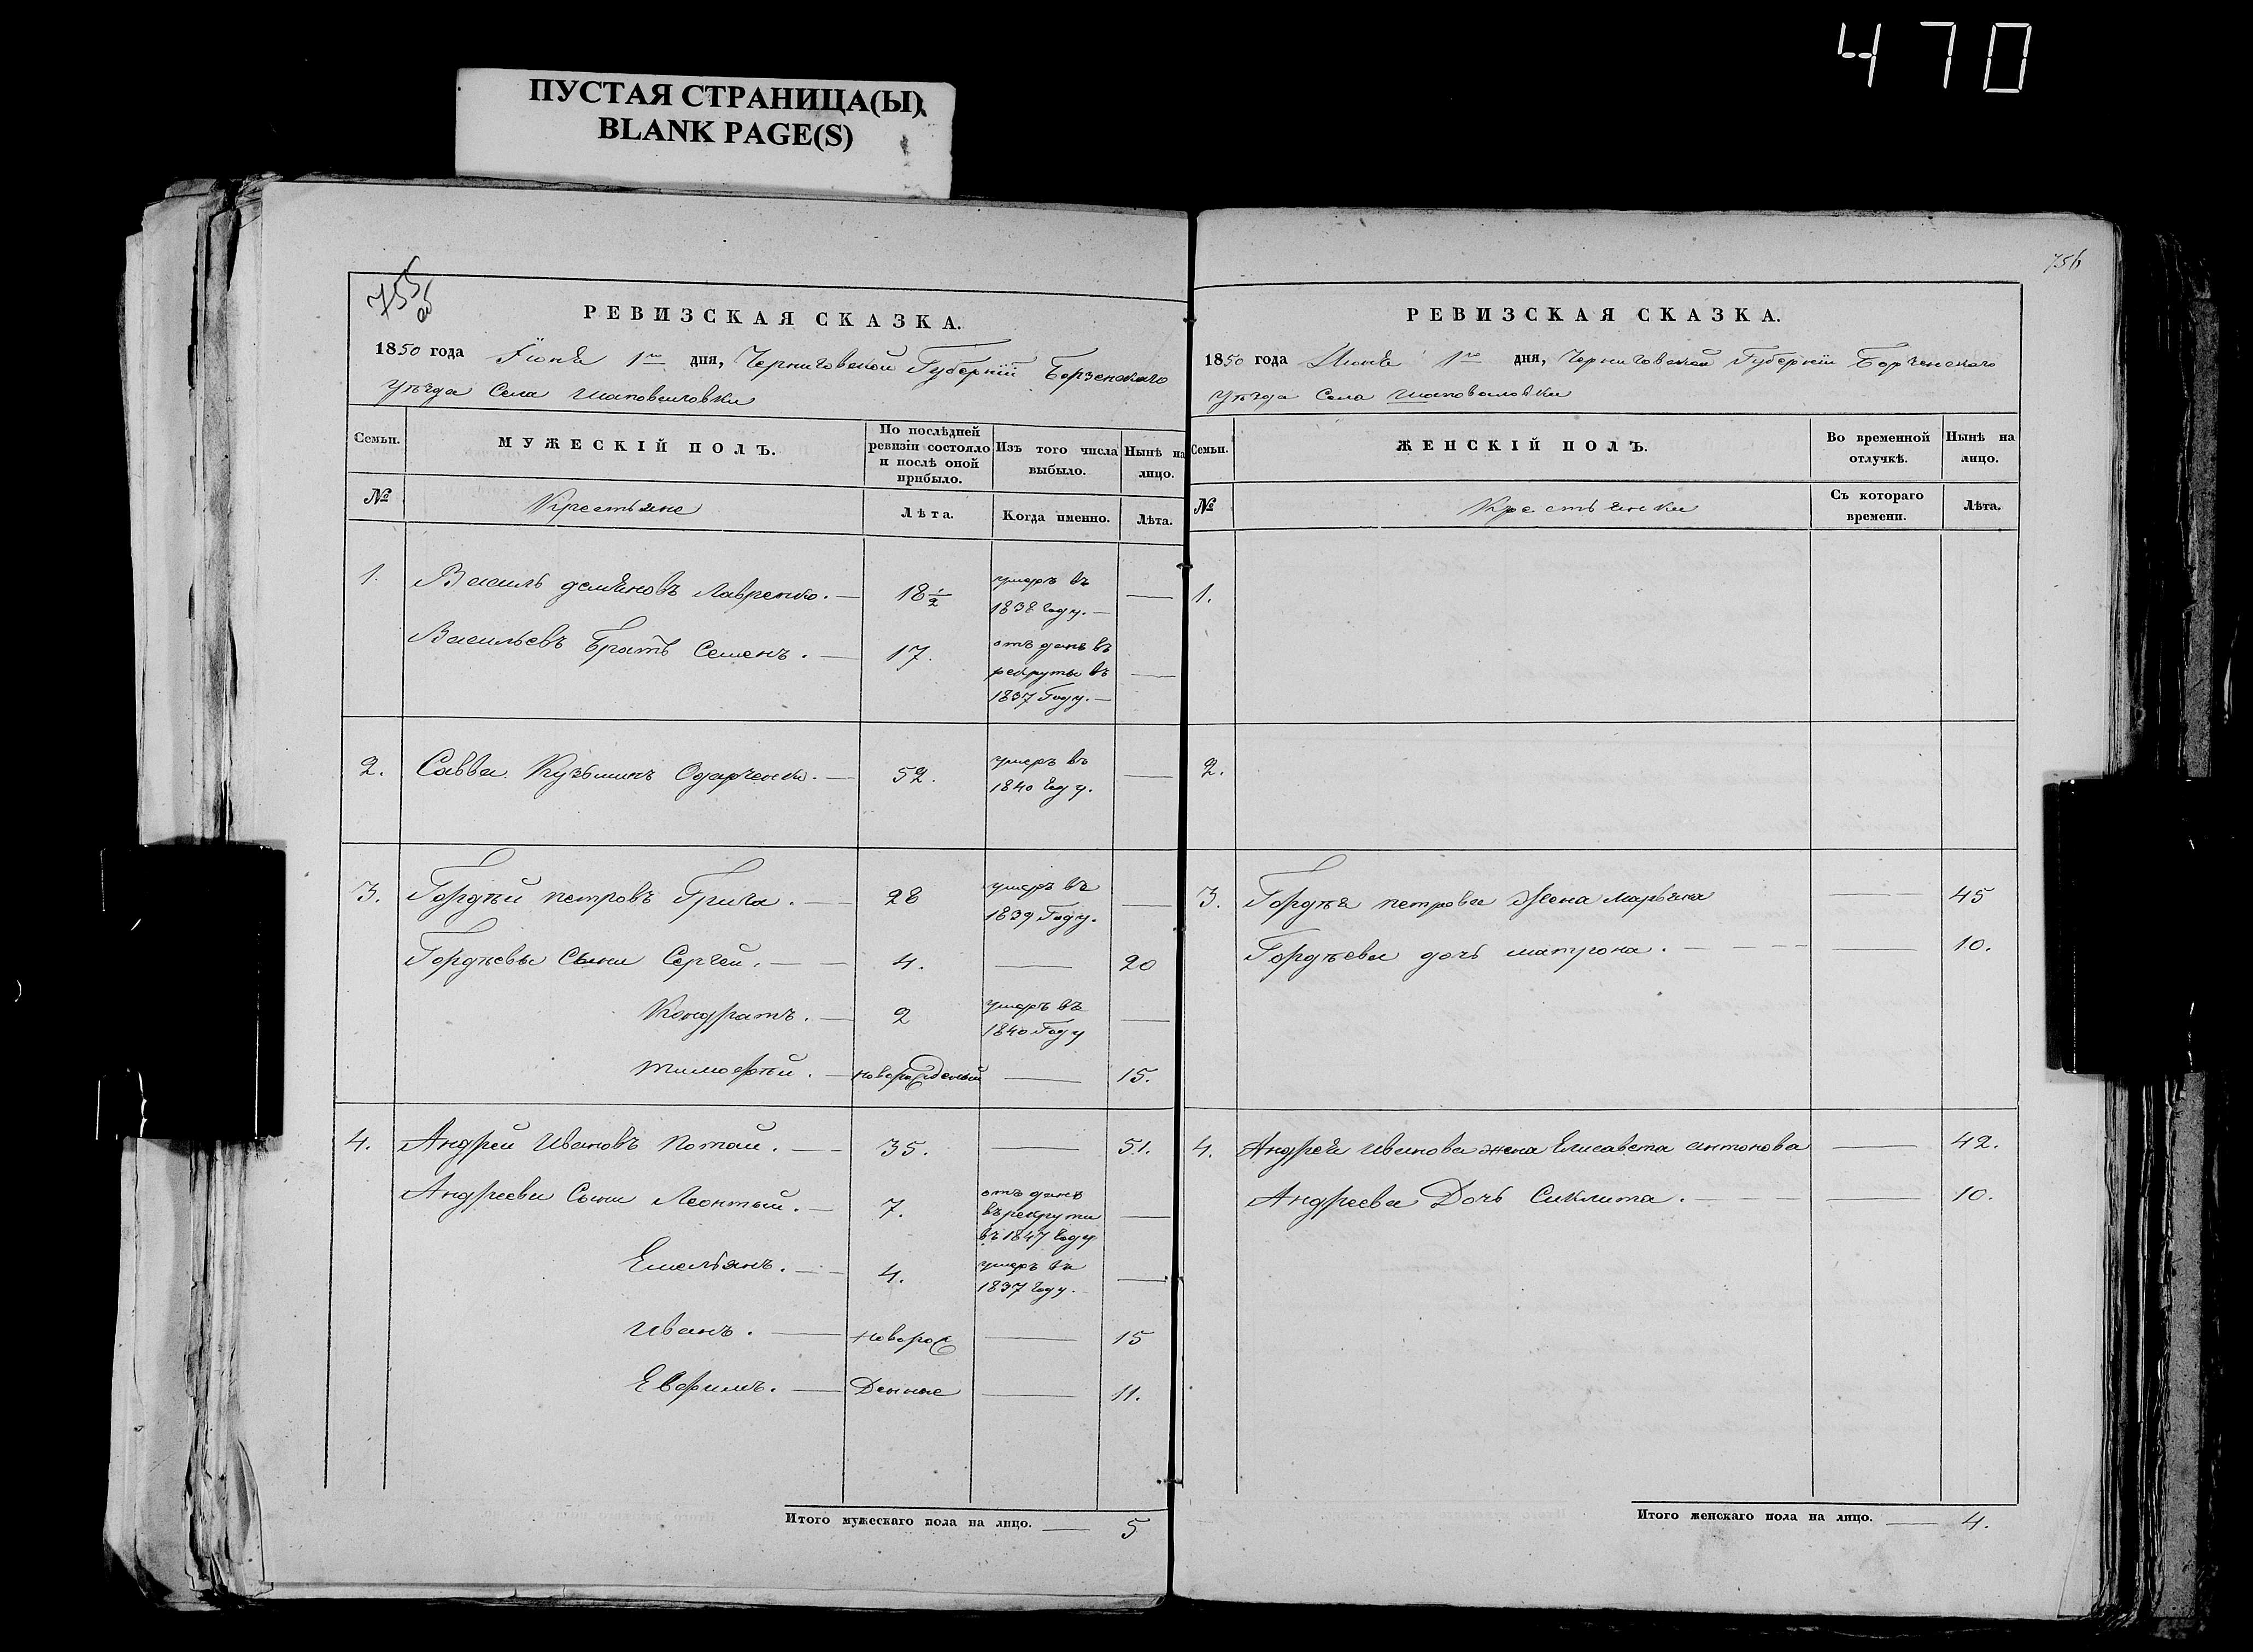 470
ПУСТАЯ СТРАНИЦА(Ы)
BLANK PAGE(S)
755
об
РЕВИЗСКАЯ СКАЗКА.
1850 года Іюня 1го дня, Черниговской Губерніи Борзенскаго
Уѣзда Села Шаповаловки
Семьи. МУЖЕСКІЙ ПОЛЪ. По послѣдней ревизіи состояло и послѣ оной прибыло. Изъ того числа выбыло. Нынѣ на лицо.
№ Крестьяне Лѣта. Когда именно. Лѣта.
1. Василь демяновъ Лавренко. — 18½ умеръ въ 1838 году. — —
Васильевъ Братъ Семенъ. — 17. отъ данъ въ рекруты въ 1837 Году. — —
2. Савва Кузьминъ Одарченко. — 52. умеръ въ 1840 году. —
3. Гордѣй петровъ Грига. — 28 умеръ въ 1839 Году. —
Гордѣевы Сыни Сергей. — 4. — 20
Кондратъ. — 2 умеръ въ 1840 Году —
тимофѣй. — новорожденый — 15.
4. Андрей Ивановъ Потай. — 35. — 51.
Андреевы Сыни Леонтый. — 7. отъ данъ въ рекрути въ 1847 году —
Емельянъ. — 4. умеръ въ 1837 году. —
Иванъ. — новорож — 15
Евфимъ. — Денные — 11.
Итого мужескаго пола на лицо. — 5
756
РЕВИЗСКАЯ СКАЗКА.
1850 года Июня 1го дня, Черниговской Губерніи Борзенскаго
Уѣзда Села Шаповаловки
Семьи. ЖЕНСКІЙ ПОЛЪ. Во временной отлучкѣ. Нынѣ на лицо.
№ Крестьянки Съ котораго времени. Лѣта.
1.
2.
3. Гордѣя петрова Жена Марьяна — 45
Гордѣева дочь матрона. — — 10.
4. Андрея Иванова жена Елисавета антонова — 42.
Андреева Дочь Сиклита. — — 10.
Итого женскаго пола на лицо. — 4.